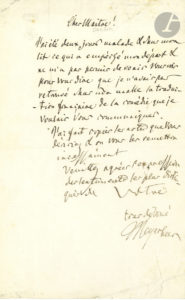 Cher Maître!
J'ai été deux jours malade & dans mon
lit ce qui a empêché mon départ &
ne m'a pas permis de venir Vous voir
pour Vous dire que je n'avais pas
retrouvé dans ma malle la traduc-
tion française de la comédie que je
voulais Vous communiquer.
J'ai fait copier les actes que Vous
desirez & on vous les remettra
incessamment
Veuillez agréer l'expression
des sentiments les plus distingués de
Votre
tout dévoué
Meyerbeer